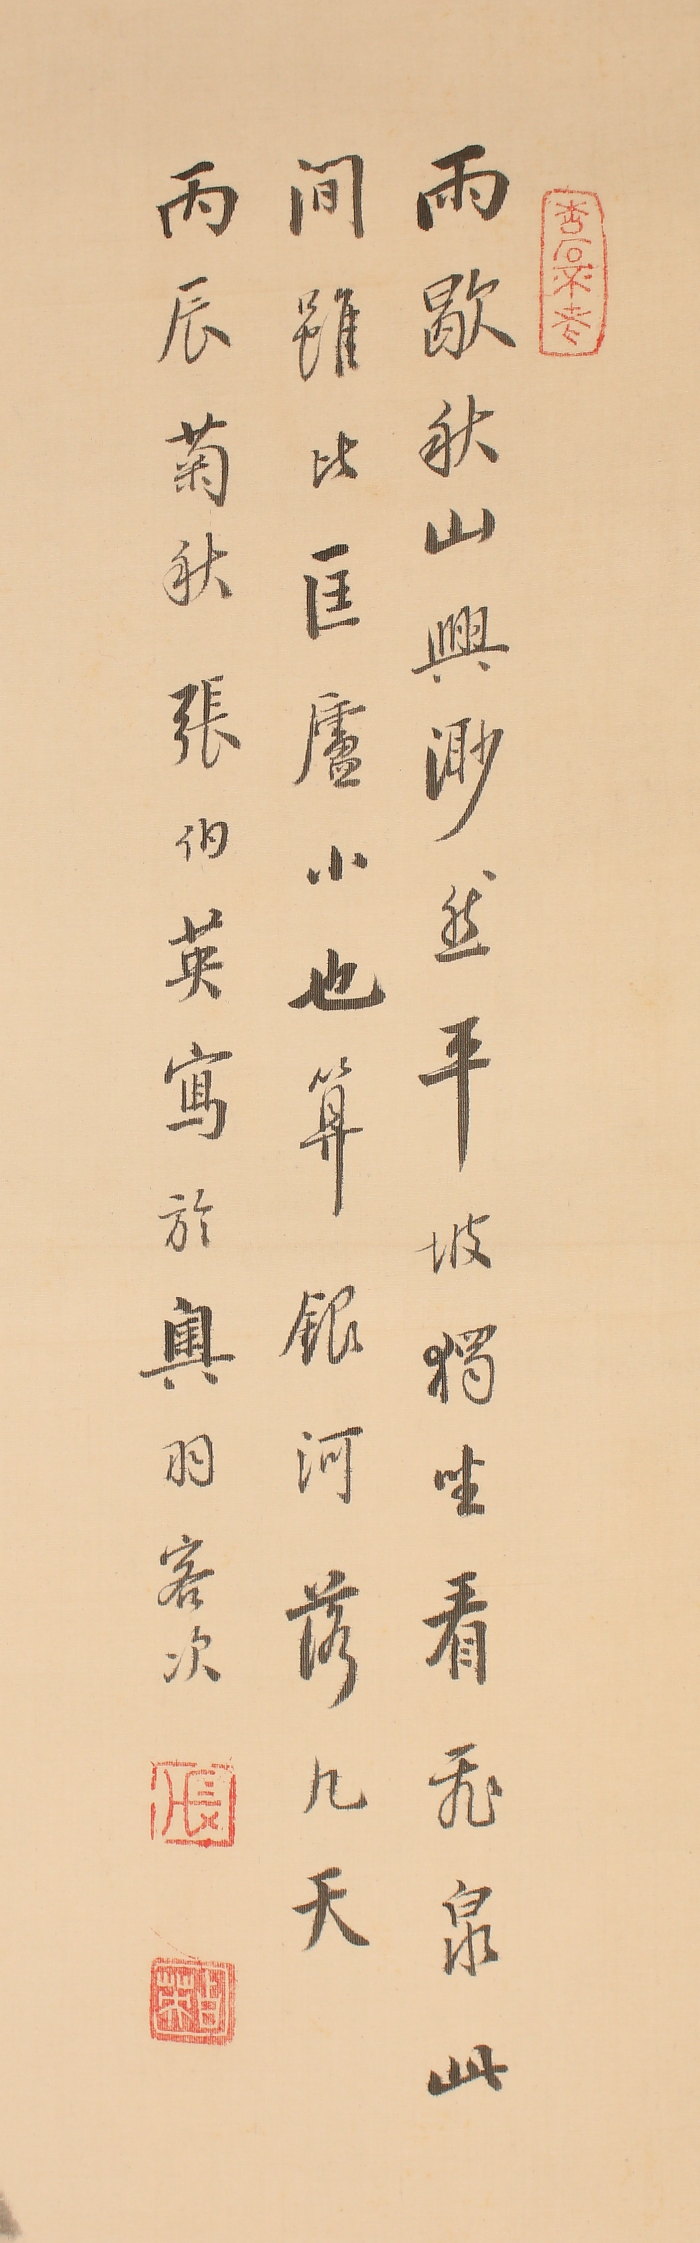 雨歇秋山興渺然平坡獨坐看飛泉此
間雖比匡廬小也算銀河落九天
丙辰菊秋張伯英寫於奧羽客次
張